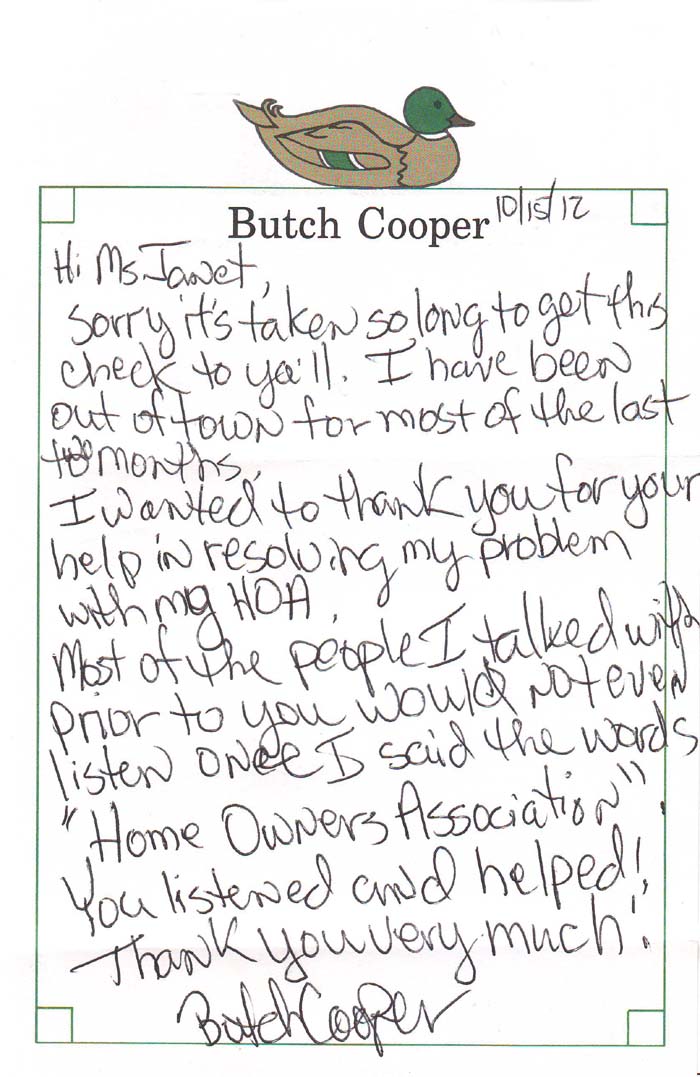 Butch Cooper 10/15/12
Hi Ms. Janet,
Sorry it's taken so long to get this
check to ya'll. I have been
out of town for most of the last
months.
I wanted to thank you for your
help in resolving my problem
with my HOA.
Most of the people I talked with
prior to you would not even
listen once I said the words
"Home Owners Association".
You listened and helped!
Thank you very much!
Butch Cooper